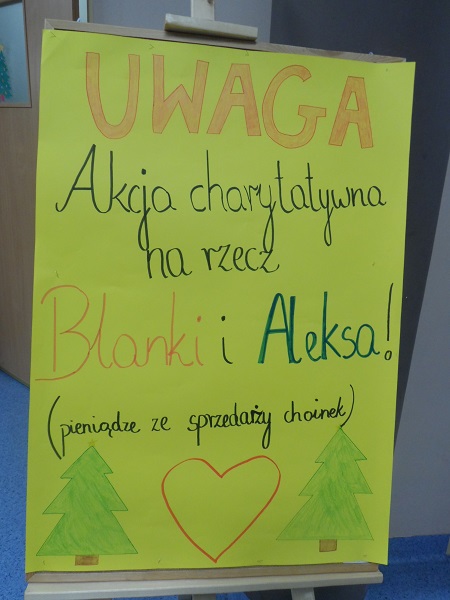 UWAGA
Akcja charytatywna
na rzecz
Blanki i Aleksa!
(pieniądze ze sprzedaży choinek)